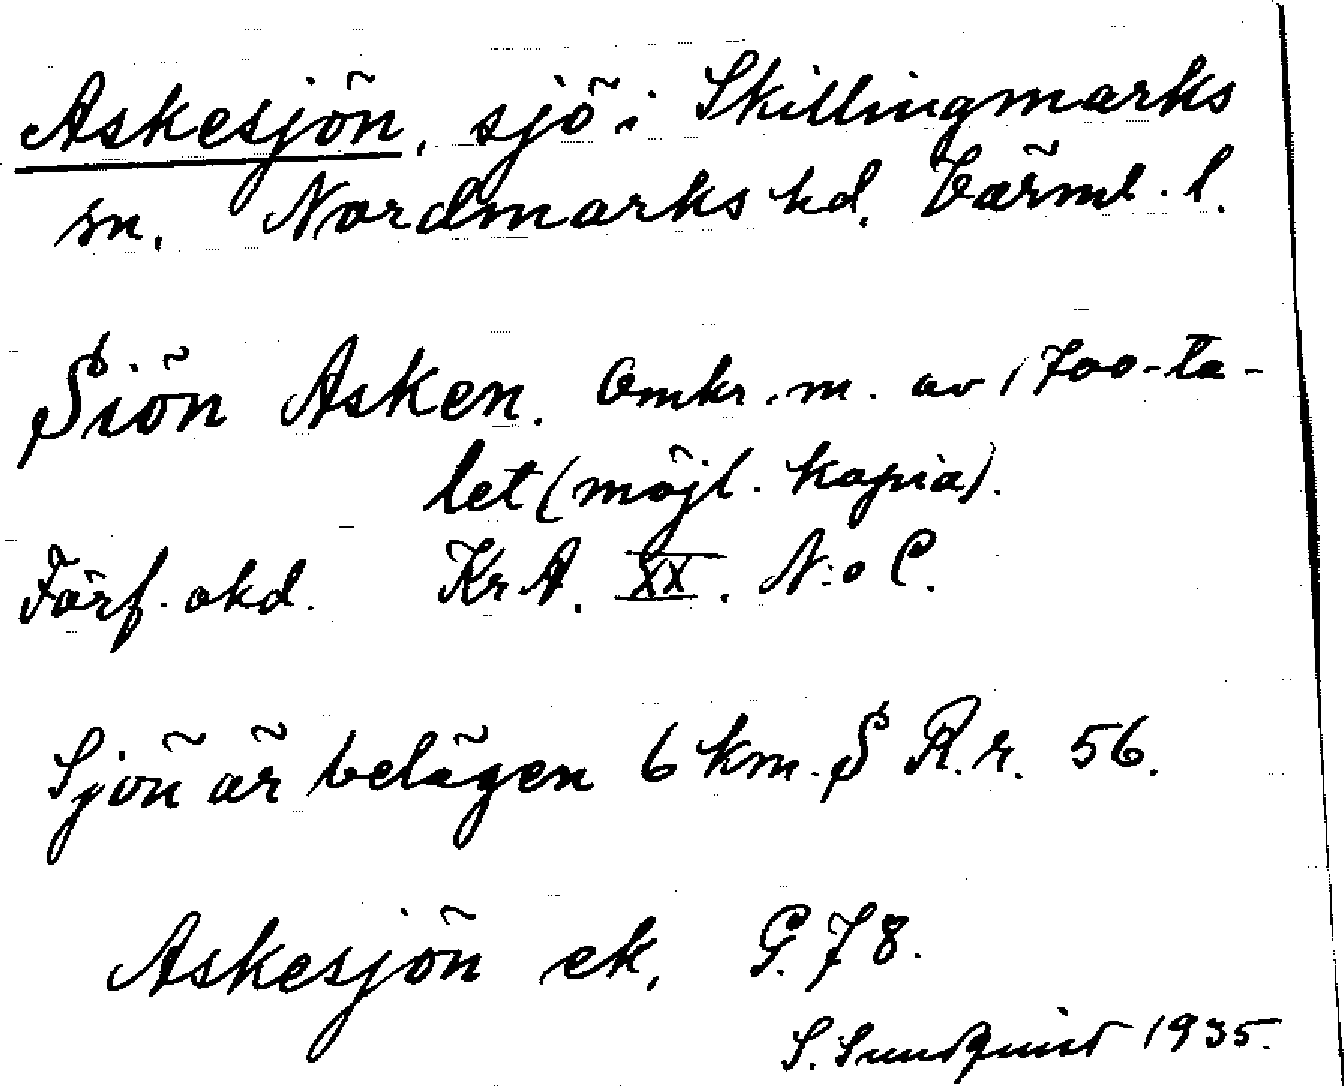 Askesjön, sjö i Skillingmarks
sn. Nordmarks hd. Värml. l.
Siön Asken. Omkr. m. av 1700-ta-
let (möjl. kopia).
Förf. okd. Kr A. XX. N:o C.
Sjön är belägen 6 km. S R.r. 56.
Askesjön ek. G. 78.
S. Sundquist 1935.